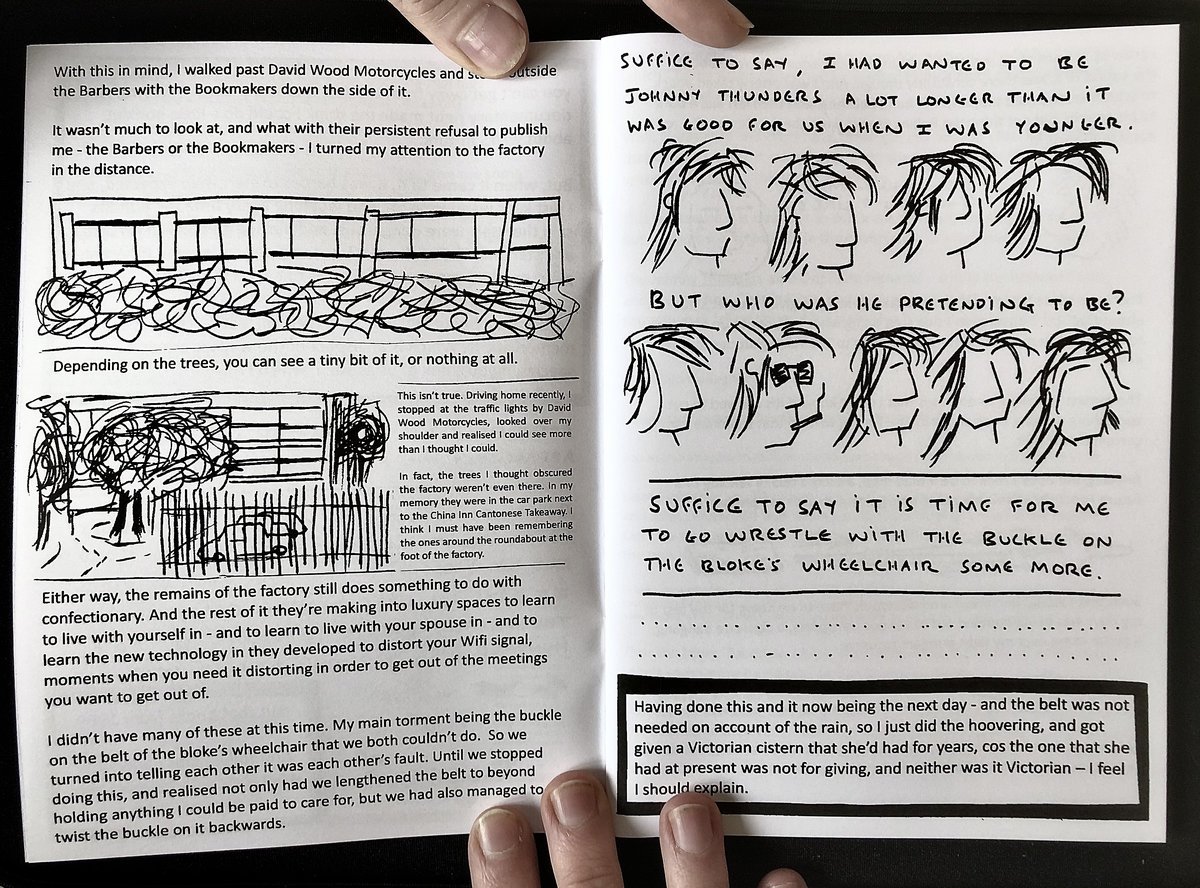 With this in mind, I walked past David Wood Motorcycles and outside
the Barbers with the Bookmakers down the side of it.
It wasn't much to look at, and what with their persistent refusal to publish
me - the Barbers or the Bookmakers - I turned my attention to the factory
in the distance.
Depending on the trees, you can see a tiny bit of it, or nothing at all.
This isn't true. Driving home recently, I
stopped at the traffic lights by David
Wood Motorcycles, looked over my
shoulder and realised I could see more
than I thought I could.
In fact, the trees I thought obscured
the factory weren't even there. In my
memory they were in the car park next
to the China Inn Cantonese Takeaway. I
think I must have been remembering
the ones around the roundabout at the
foot of the factory.
Either way, the remains of the factory still does something to do with
confectionary. And the rest of it they're making into luxury spaces to learn
to live with yourself in - and to learn to live with your spouse in - and to
learn the new technology in they developed to distort your Wifi signal,
moments when you need it distorting in order to get out of the meetings
you want to get out of.
I didn't have many of these at this time. My main torment being the buckle
on the belt of the bloke's wheelchair that we both couldn't do. So we
turned into telling each other it was each other's fault. Until we stopped
doing this, and realised not only had we lengthened the belt to beyond
holding anything I could be paid to care for, but we had also managed to
twist the buckle on it backwards.
SUFFICE TO SAY, I HAD WANTED TO BE
JOHNNY THUNDERS A LOT LONGER THAN IT
WAS GOOD FOR US WHEN I WAS YOUNGER.
BUT WHO WAS HE PRETENDING TO BE?
SUFFICE TO SAY IT IS TIME FOR ME
TO GO WRESTLE WITH THE BUCKLE ON
THE BLOKE'S WHEELCHAIR SOME MORE.
Having done this and it now being the next day - and the belt was not
needed on account of the rain, so I just did the hoovering, and got
given a Victorian cistern that she'd had for years, cos the one that she
had at present was not for giving, and neither was it Victorian – I feel
I should explain.